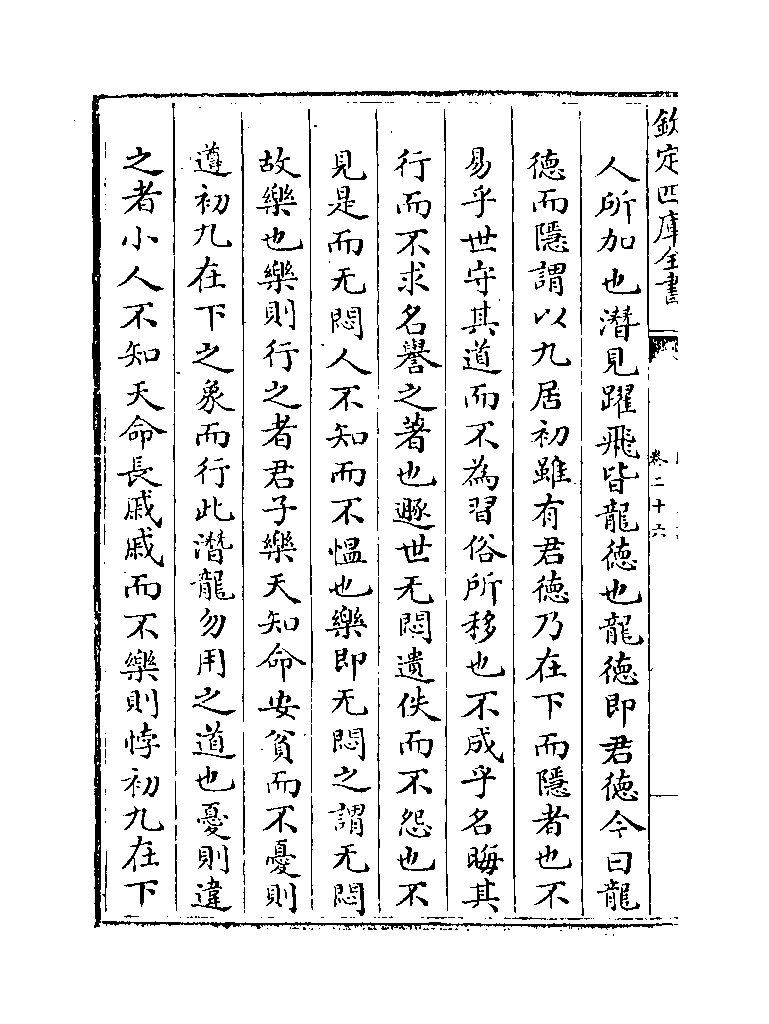 欽定四庫全書
卷二十六
人所加也潛見躍飛皆龍徳也龍徳即君徳今曰龍
徳而隱謂以九居初雖有君徳乃在下而隱者也不
易乎世守其道而不為習俗所移也不成乎名晦其
行而不求名譽之著也遯世无悶遺佚而不怨也不
見是而无悶人不知而不愠也樂即无悶之謂无悶
故樂也樂則行之者君子樂天知命安貧而不憂則
遵初九在下之象而行此潛龍勿用之道也憂則違
之者小人不知天命長戚戚而不樂則悖初九在下